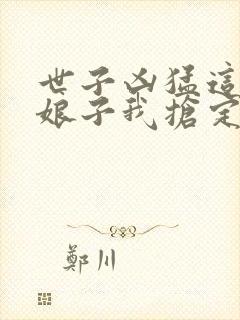 世子凶猛這
娘子我搶定
鄭川